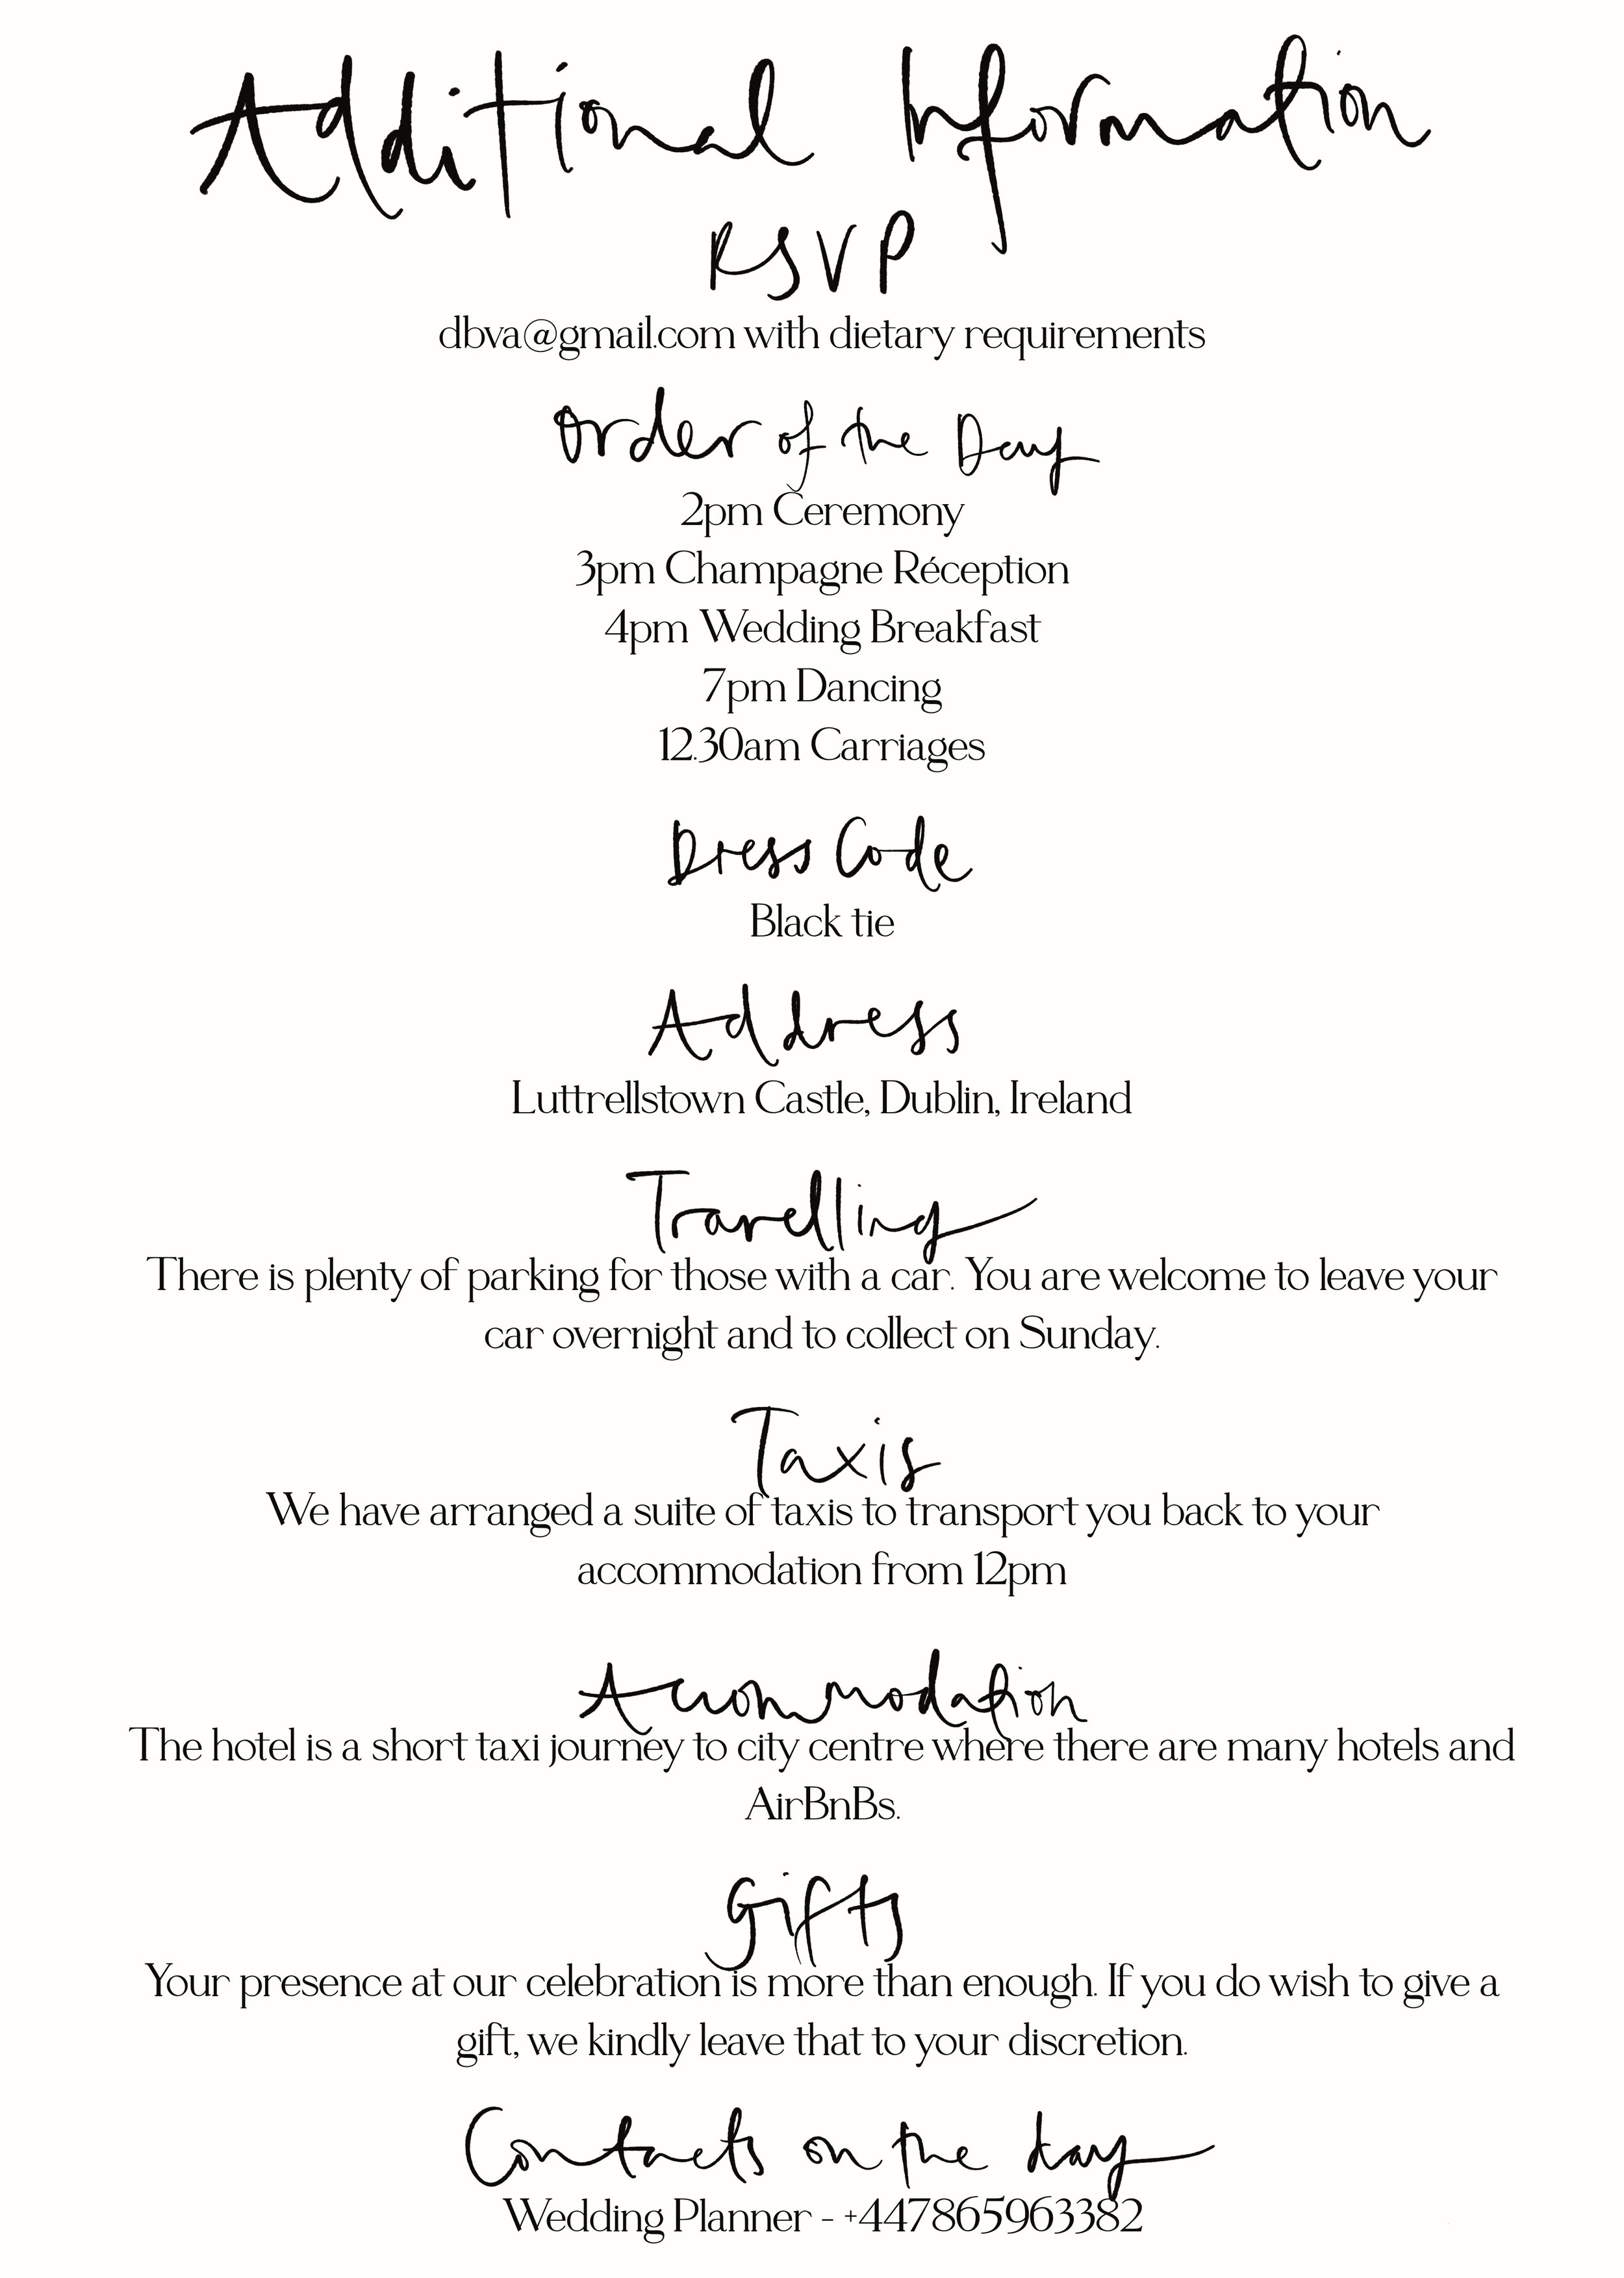 Additional Information
RSVP
dbva@gmail.com with dietary requirements
Order of the Day
2pm Ceremony
3pm Champagne Réception
4pm Wedding Breakfast
7pm Dancing
12.30am Carriages
Dress Code
Black tie
Address
Luttrellstown Castle, Dublin, Ireland
Travelling
There is plenty of parking for those with a car. You are welcome to leave your
car overnight and to collect on Sunday.
Taxis
We have arranged a suite of taxis to transport you back to your
accommodation from 12pm
Accommodation
The hotel is a short taxi journey to city centre where there are many hotels and
AirBnBs.
Gifts
Your presence at our celebration is more than enough. If you do wish to give a
gift, we kindly leave that to your discretion.
Contacts on the day
Wedding Planner - +447865963382